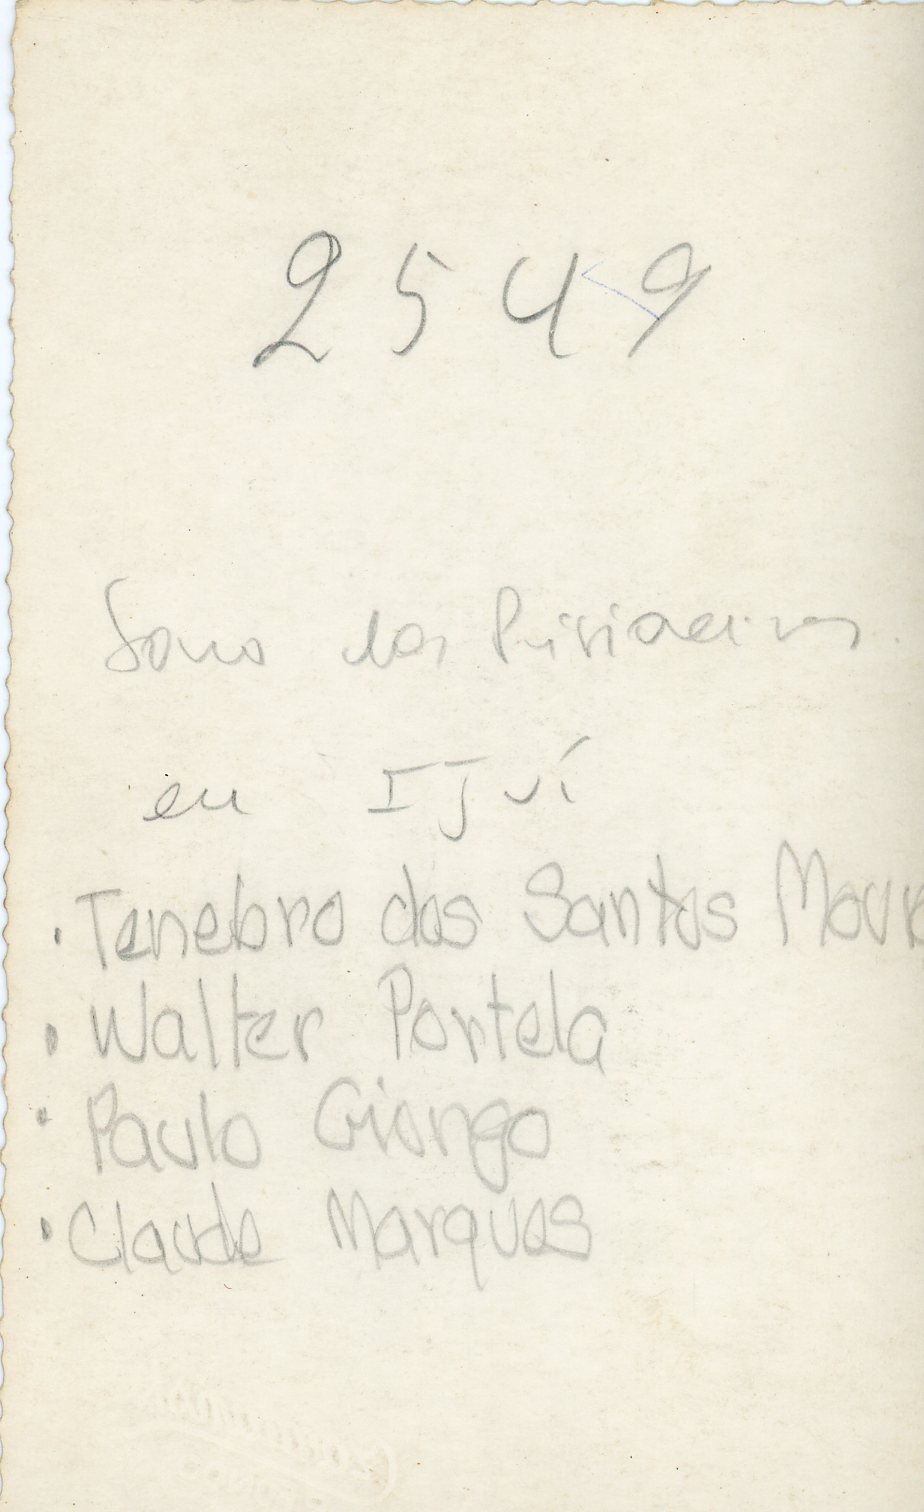 2549
dos
em IJuí
• Tenebro dos Santos Mour
• Walter Portela
• Paulo Giongo
• Claude Marques